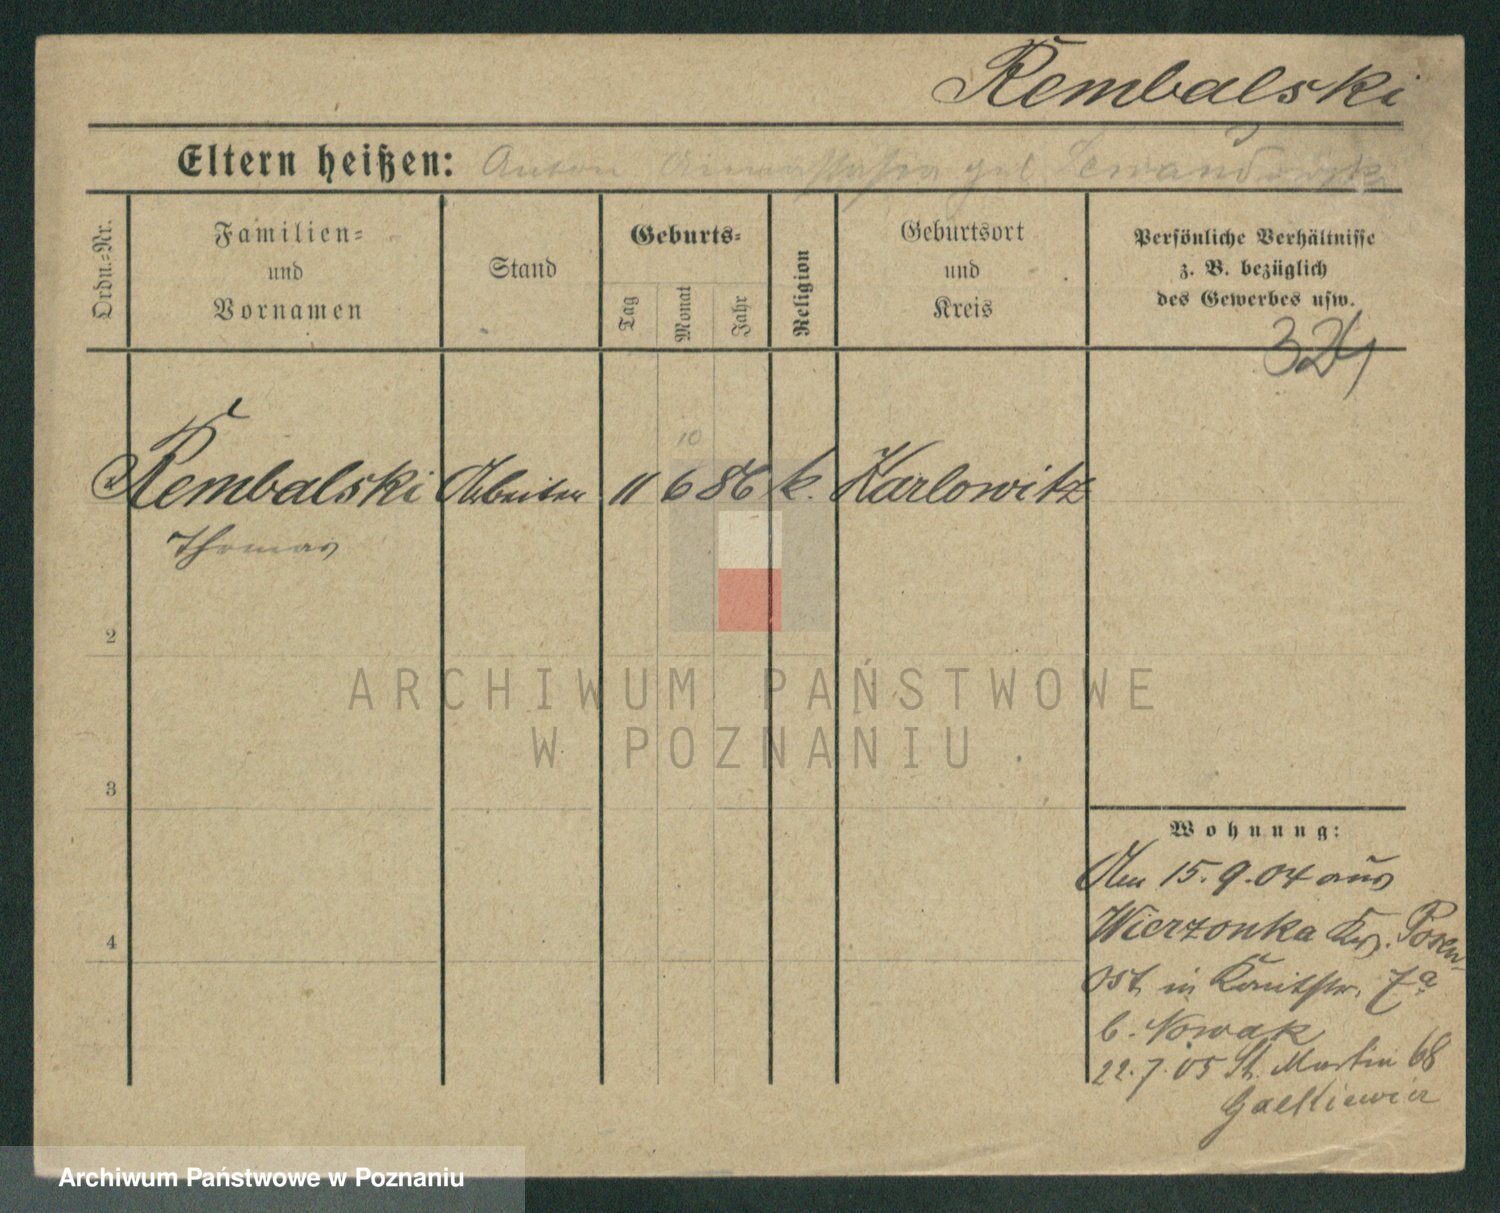 Rembalski
Eltern heißen: Anton Annastasia geb. Lewandowska
Ordn.-Nr.
Familien-
und
Vornamen
Stand
Geburts-
Tag
Monat
Jahr
Religion
Geburtsort
und
Kreis
Persönliche Verhältnisse
z. B. bezüglich
des Gewerbes usw.
10
Rembalski Arbeiter 11 6 86 k. Karlowitz
Thomas
2
3
4
Wohnung:
Am 15.9.04 aus
Wierzonka Krs. Posen-
Ost in 7a
b. Nowak
22.7.05 St. Martin 68
ARCHIWUM PAŃSTWOWE
W POZNANIU
Archiwum Państwowe w Poznaniu